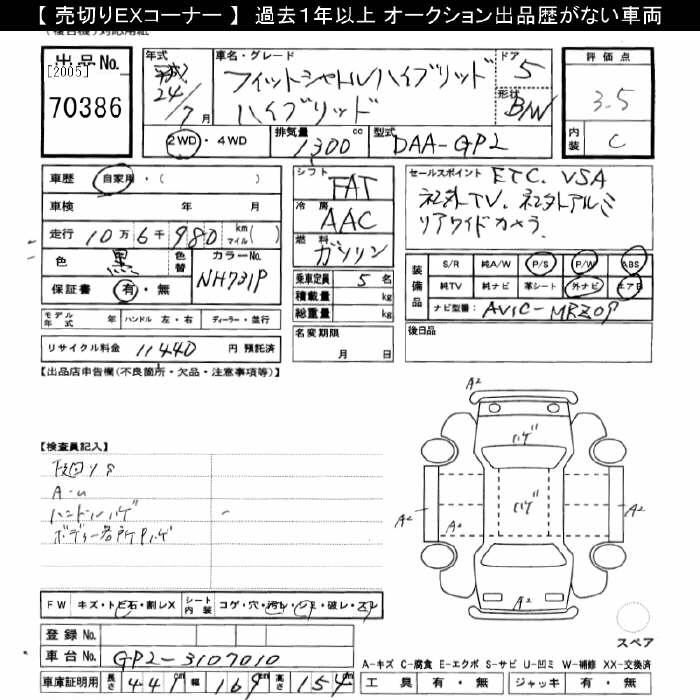 【 売切りEXコーナー 】 過去１年以上 オークション出品歴がない車両
出品No.
[2005]
70386
年式
平成
24/7月
車名・グレード
フィットシャトルハイブリッド
ハイブリッド
ドア
5
形状
B/W
評価点
3.5
内装
C
2WD・4WD
排気量
1300 cc
型式
DAA-GP2
車歴 自家用・( )
車検 年 月
走行 10万6千980 km マイル( )
色 黒 色替
カラーNo.
NH731P
保証書 有・無
シフト
FAT
冷房
AAC
燃料
ガソリン
乗車定員 5 名
積載量 kg
総重量 kg
名変期限
月 日
セールスポイント ETC. VSA
社外TV. 社外アルミ
リアワイドカメラ
装備品
S/R 純A/W P/S P/W ABS
純TV 純ナビ 革シート 外ナビ エアB
ナビ型番: AVIC-MRZ09
後日品
モデル年式 年 ハンドル 左・右 ディーラー・並行
リサイクル料金 11440 円 預託済
【出品店申告欄(不良箇所・欠品・注意事項等)】
【検査員記入】
A-U
ハンドルハゲ
ボディー各所Pハゲ
A2
ハゲ
A2
ハゲ
A2
A2
スペア
FW キズ・トビ石・割レX
シート内装 コゲ・穴・汚レ・シミ・破レ・スレ
登録No.
車台No. GP2-3107010
車庫証明用 長さ 441 幅 169 高さ 154
A-キズ C-腐食 E-エクボ S-サビ U-凹ミ W-補修 XX-交換済
工具 有・無 ジャッキ 有・無